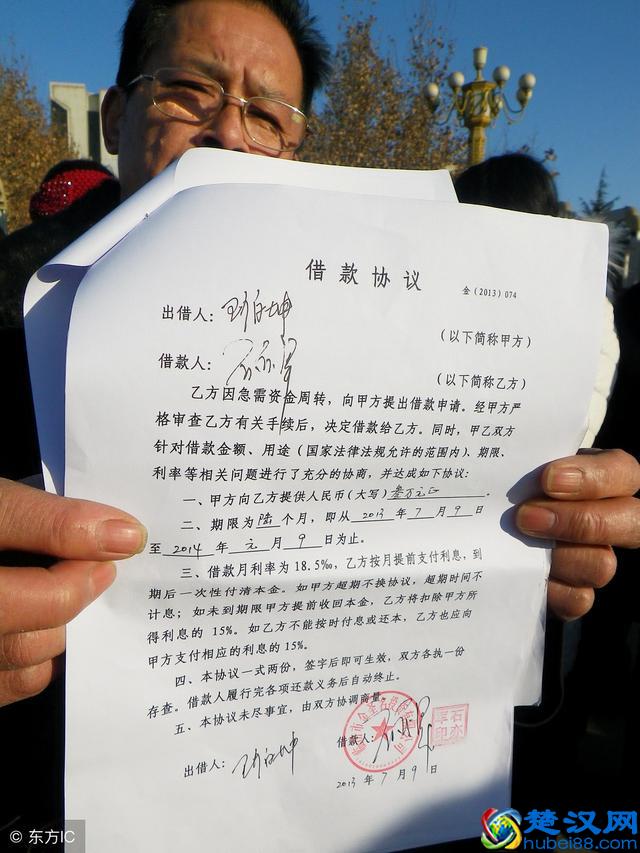 借款协议
金(2013)074
出借人：
(以下简称甲方)
借款人：
(以下简称乙方)
乙方因急需资金周转，向甲方提出借款申请。经甲方严
格审查乙方有关手续后，决定借款给乙方。同时，甲乙双方
针对借款金额、用途（国家法律法规允许的范围内）、期限、
利率等相关问题进行了充分的协商，并达成如下协议：
一、甲方向乙方提供人民币(大写)叁万元正。
二、期限为陆个月，即从2013年7月9日
至2014年元月9日为止。
三、借款月利率为18.5‰，乙方按月提前支付利息，到
期后一次性付清本金。如甲方超期不换协议，超期时间不
计息；如未到期限甲方提前收回本金，乙方将扣除甲方所
得利息的 15%。如乙方不能按时付息或还本，乙方也应向
甲方支付相应的利息的15%。
四、本协议一式两份，签字后即可生效，双方各执一份
存查。借款人履行完各项还款义务后自动终止。
五、本协议未尽事宜，由双方协调商量。
借款人：
出借人：
2013年7月9日
© 东方IC
楚汉网
hubei88.com